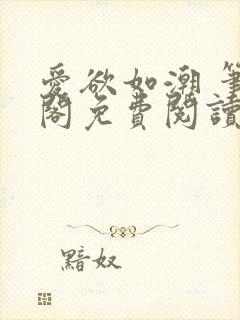 愛欲如潮 筆
閣免費閱讀
黯奴